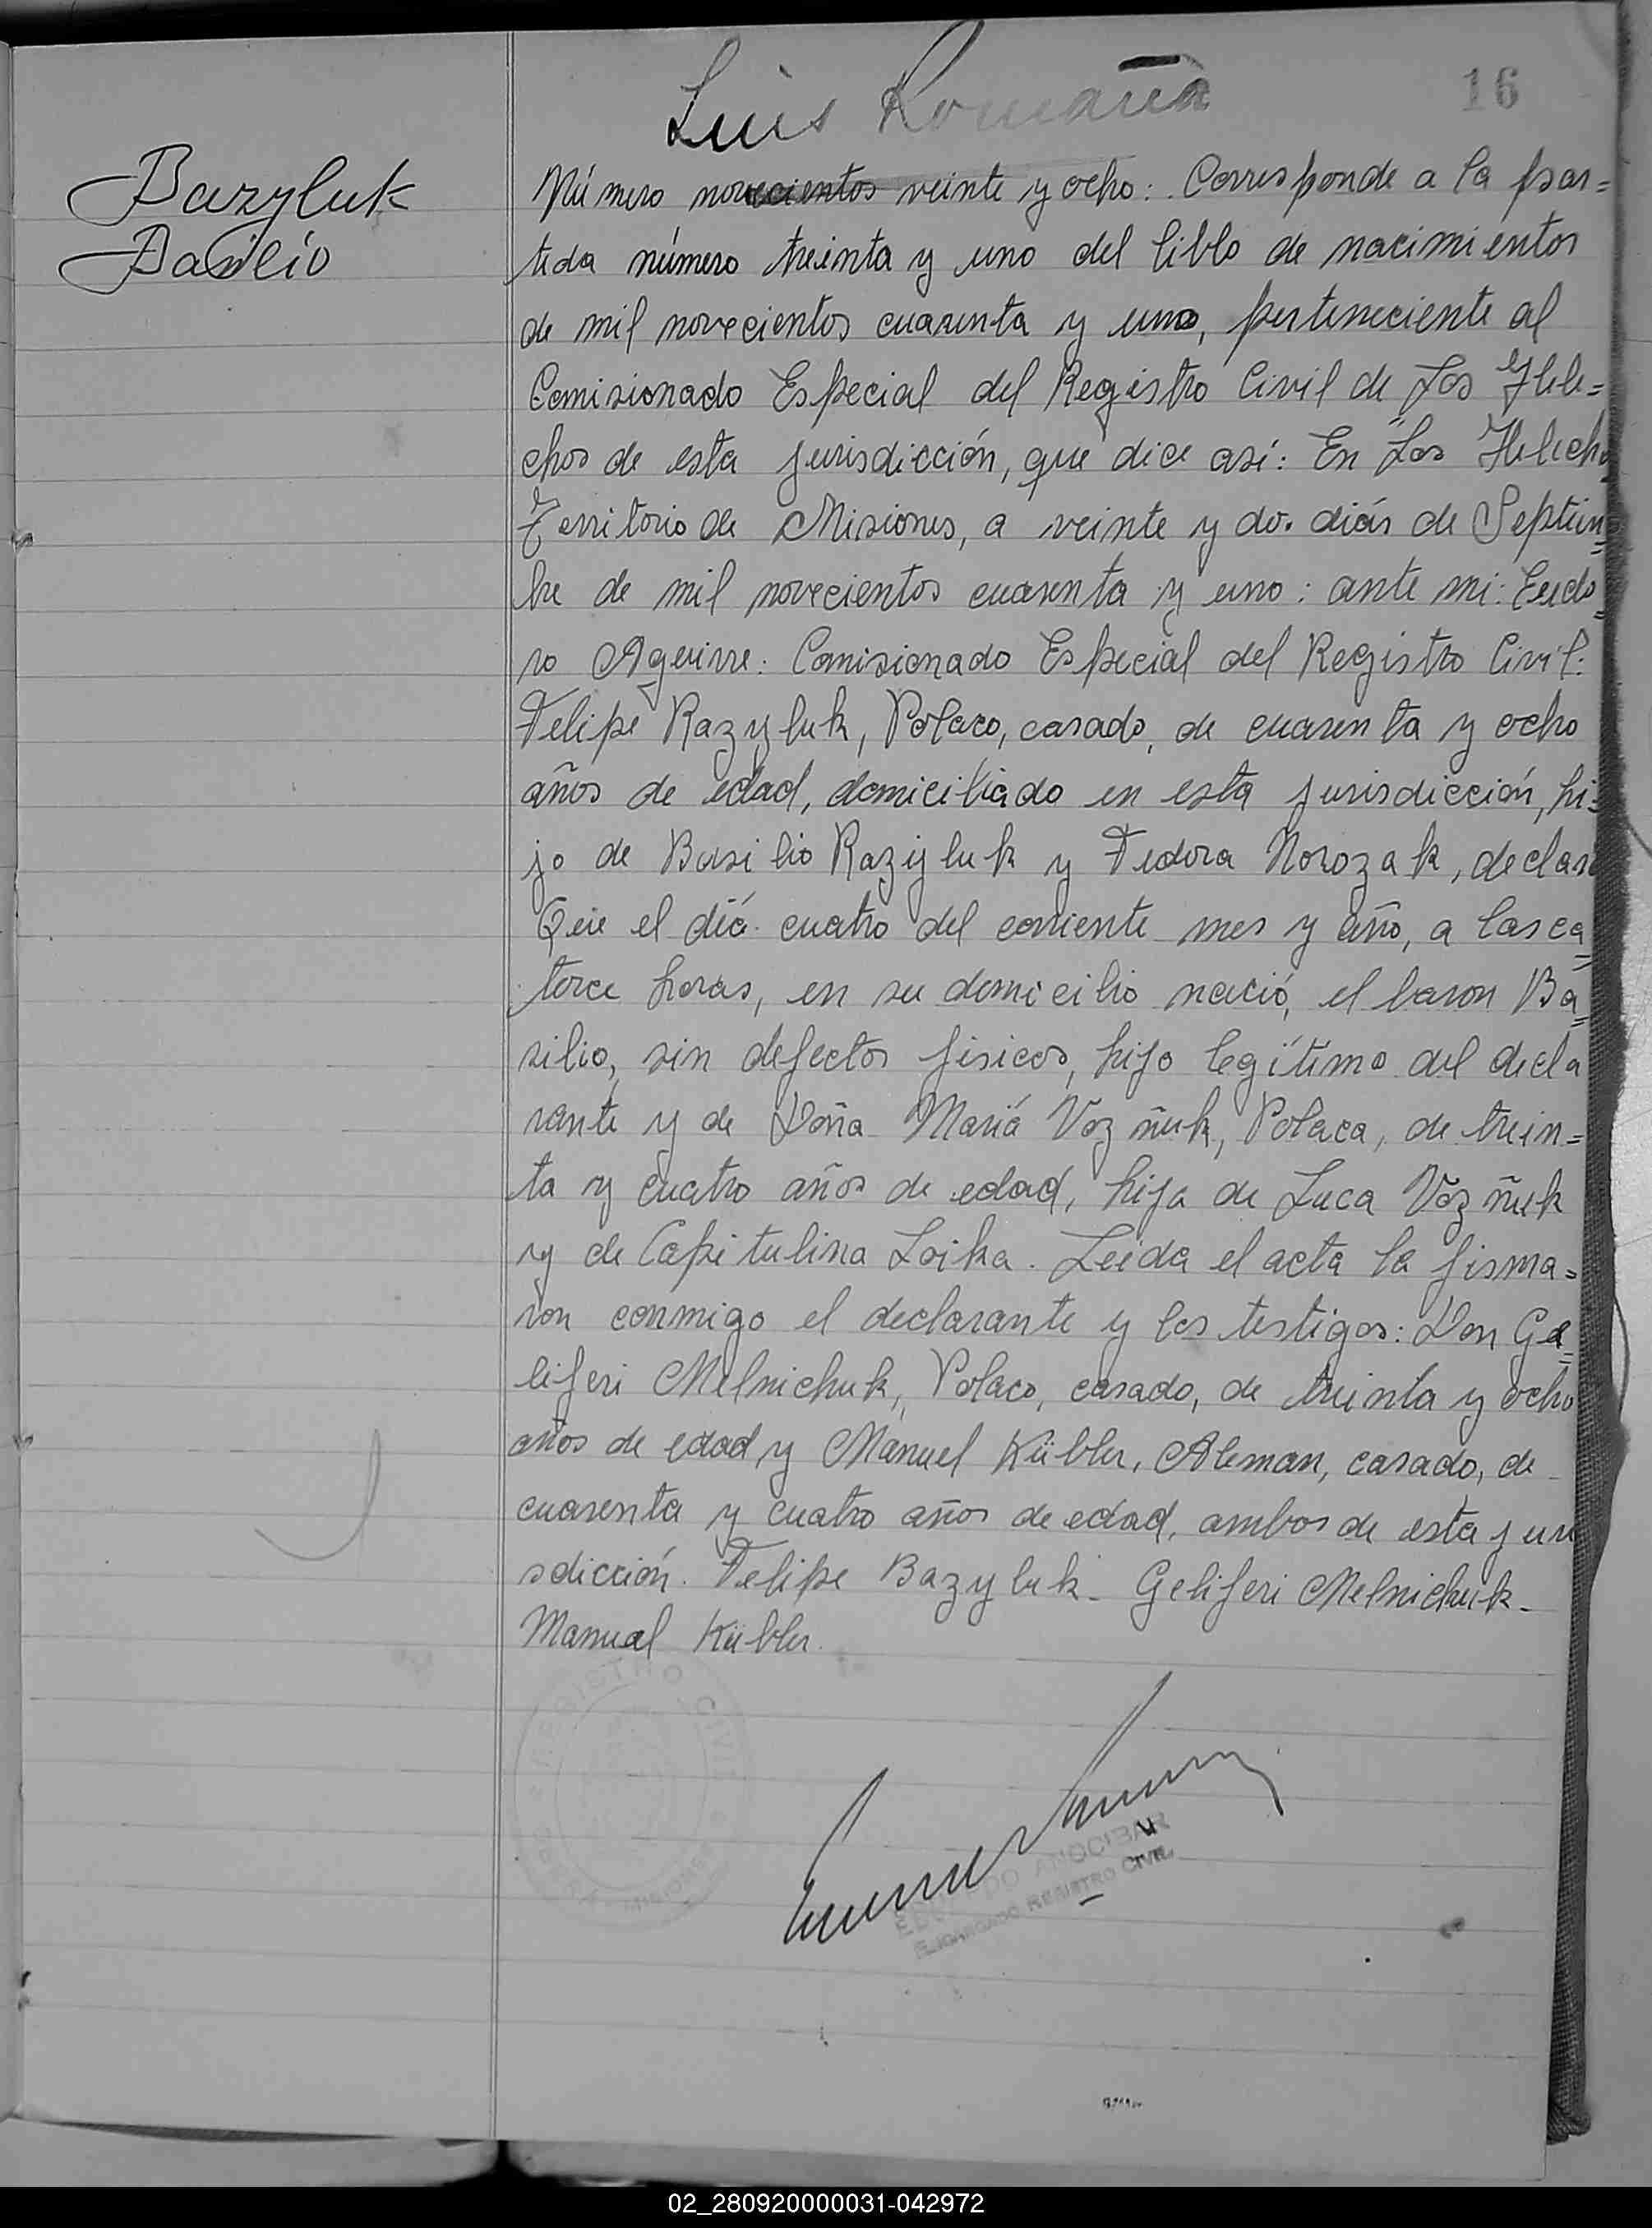 Luis Romaña
16
Bazyluk
Basilio
Número novecientos veinte y ocho: Corresponde a la par=
tida número treinta y uno del liblo de nacimientos
de mil novecientos cuarenta y uno, perteneciente al
Comisionado Especial del Registro Civil de Los Hele=
chos de esta jurisdicción, que dice asi: En Los Helechos
Territorio de Misiones, a veinte y dos diás de Septiem=
bre de mil novecientos cuarenta y uno: ante mi: Eudo=
ro Aguirre: Comisionado Especial del Registro Civil:
Felipe Razyluk, Polaco, casado, de cuarenta y ocho
años de edad, domiciliado en esta jurisdicción, hi=
jo de Basilio Razyluk y Fedora Norozak, declara
Que el diá cuatro del corriente mes y año, a las ca=
torce horas, en su domicilio nació, el baron Ba=
silio, sin defectos fisicos, hijo legítimo del decla
rante y de Doña Mariá Vozñuk, Polaca, de trein=
ta y cuatro años de edad, hija de Luca Vozñuk
y de Capitulina Loika. Leida el acta la firma=
ron conmigo el declarante y los testigos: Don Ge=
liferi Melnichuk, Polaco, casado, de treinta y ocho
años de edad y Manuel Kübler, Aleman, casado, de
cuarenta y cuatro años de edad, ambos de esta juri
sdicción. Felipe Bazyluk - Geliferi Melnichuk -
Manuel Kübler.
REGISTRO CIVIL
MISIONES
ANOCIBAR
ENCARGADO REGISTRO CIVIL
02_280920000031-042972